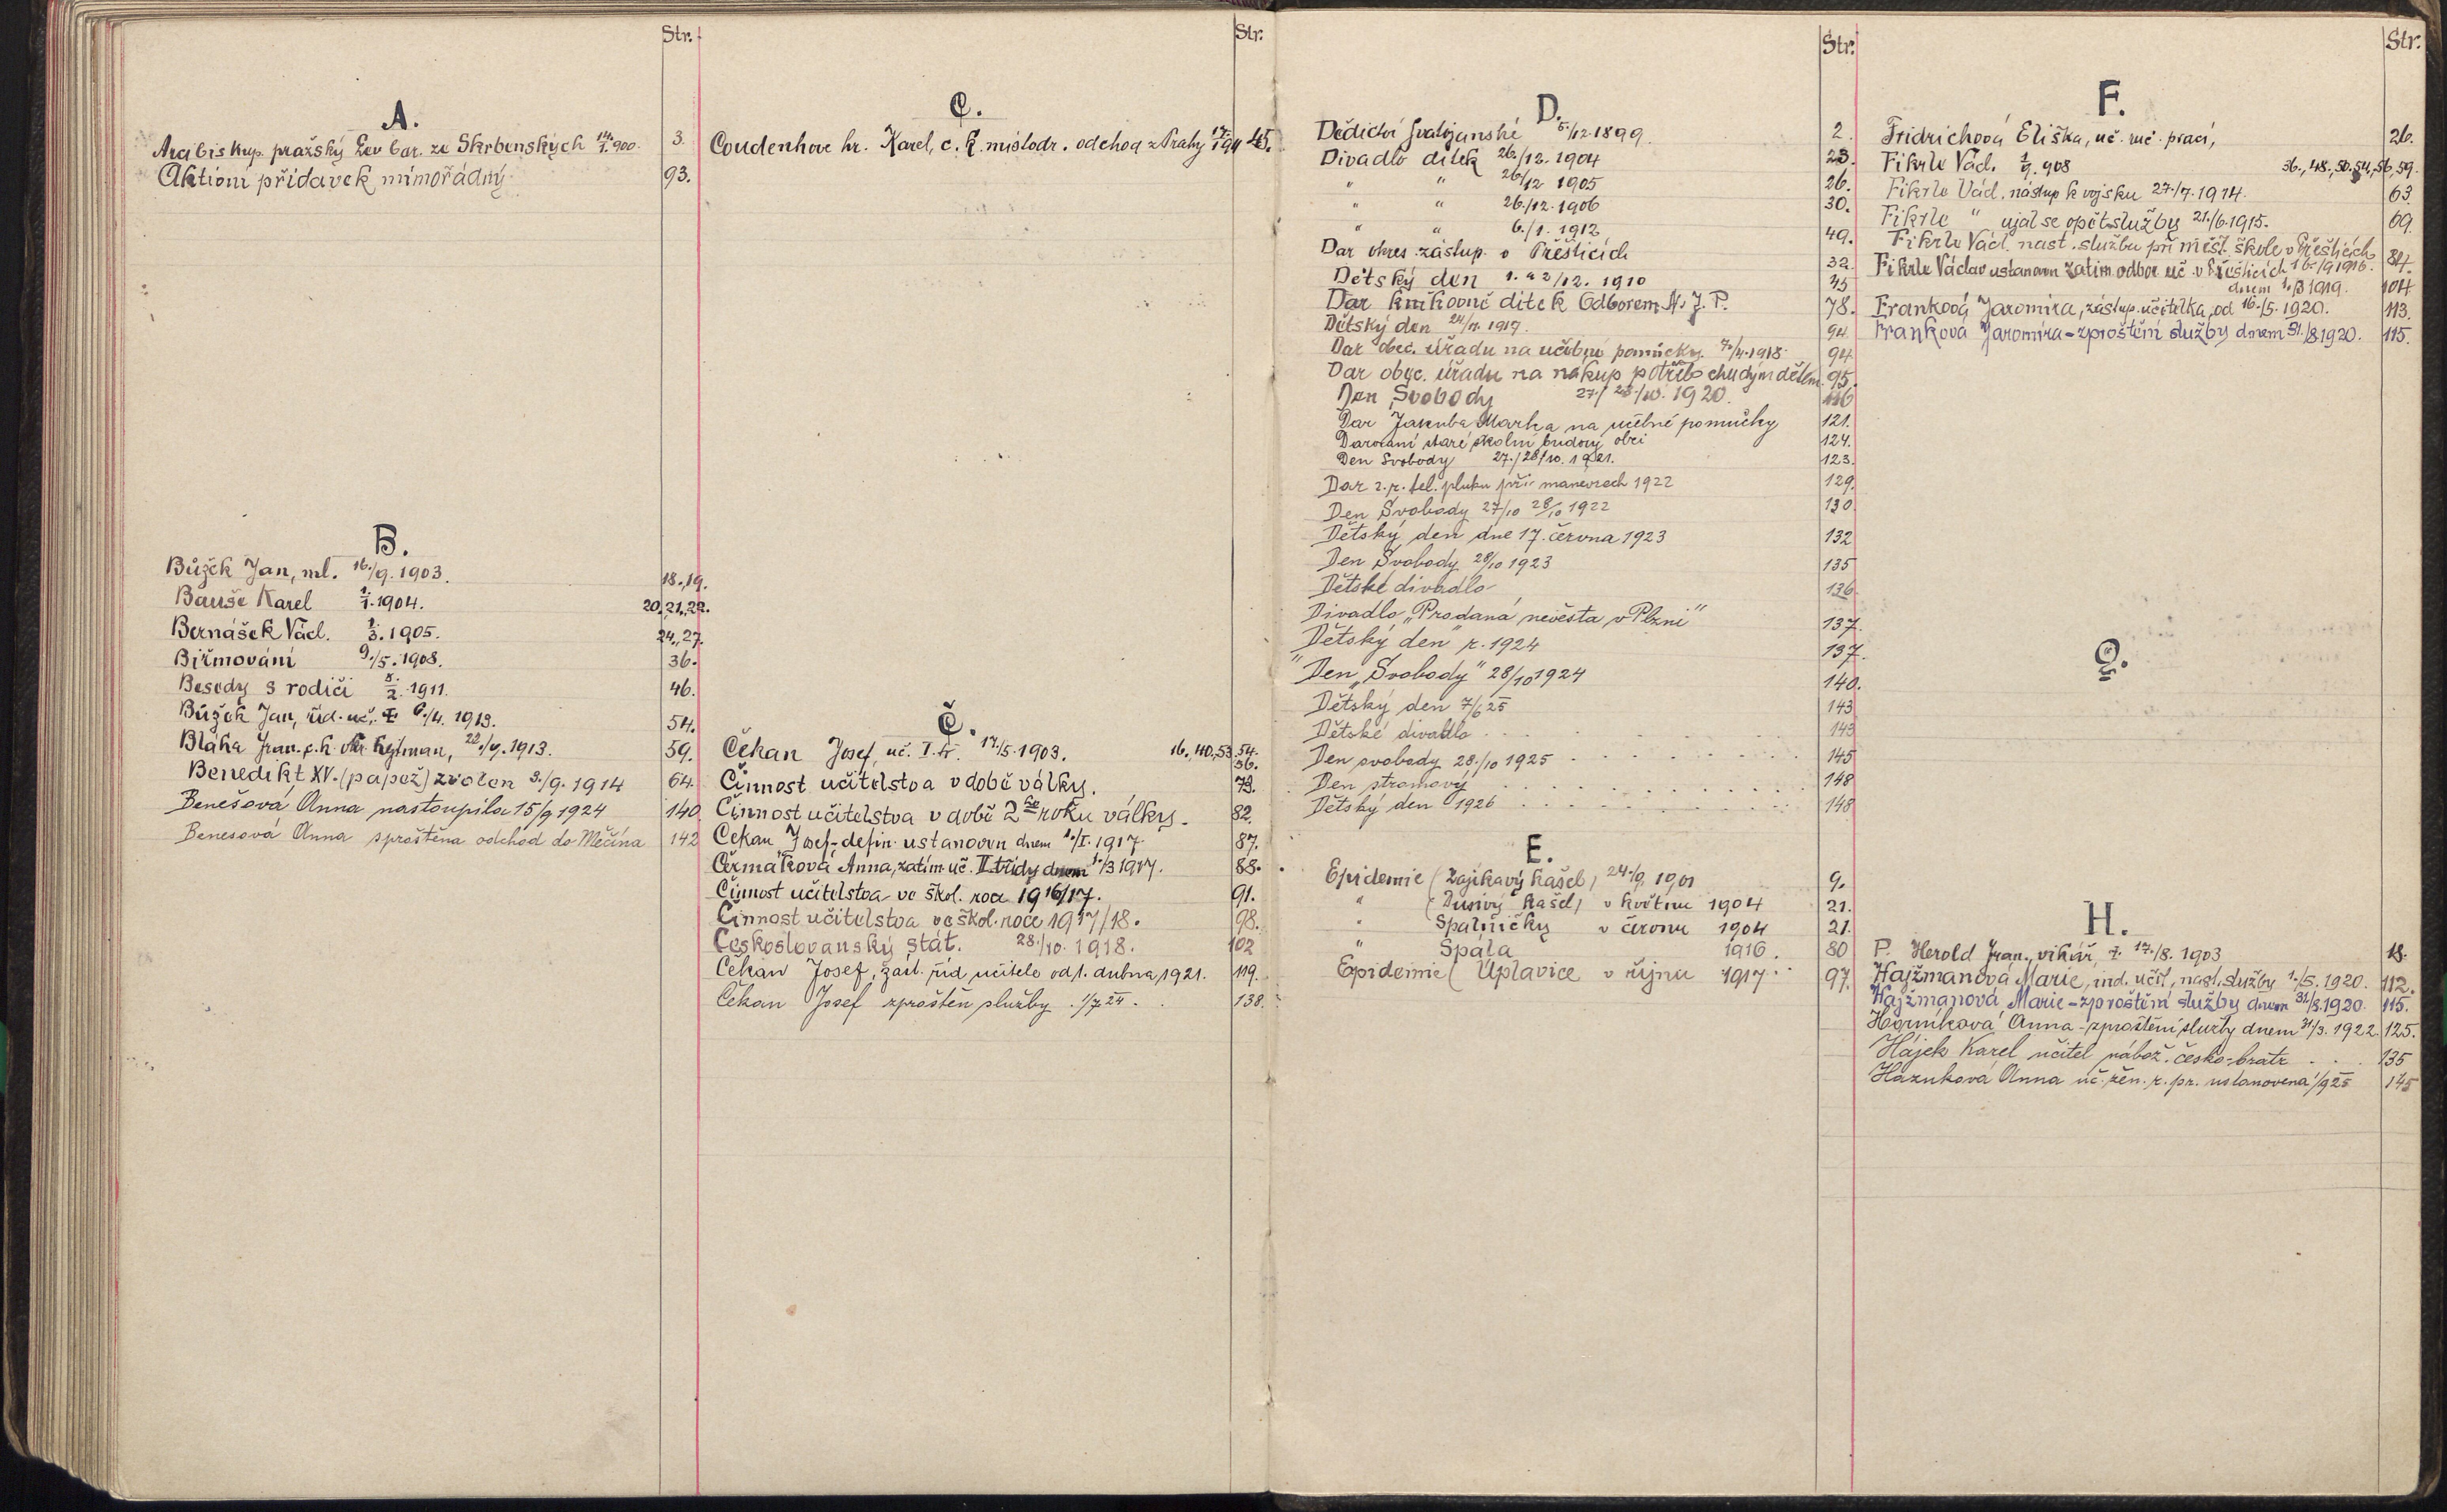 Str.
A.
Arcibiskup pražský Lev bar. ze Skrbenských 14./1. 900. 3.
Aktioní přídavek mimořádný 93.
B.
Bůžek Jan, ml. 16./9. 1903. 18., 19.
Bauše Karel 1./1. 1904. 20, 21, 22.
Bernášek Václ. 1./3. 1905. 24., 27.
Biřmování 9./5. 1908. 36.
Besedy s rodiči 8./2. 1911. 46.
Bůžek Jan, řid. uč. 6./4. 1913. 54.
Bláha Fran. c. k. okr. hejtman, 22./7. 1913. 59.
Benedikt XV. (papež) zvolen 3./9. 1914 64.
Benešová Anna nastoupila 15/9 1924 140
Benesová Anna sproštěna odchod do Měčína 142
Str.
C.
Coudenhove hr. Karel, c. k. místodr. odchod z Prahy 45.
Č.
Čekan Josef, uč. I. tř. 17./5. 1903. 16., 40, 53, 54. 56.
Činnost učitelstva v době války. 73.
Činnost učitelstva v době 2ho roku války. 82.
Čekan Josef - defin. ustanoven dnem 1./I. 1917. 87.
Čermáková Anna, zatím. uč. II. třídy dnem 1./3 1917. 88.
Činnost učitelstva ve škol. roce 1916/17. 91.
Činnost učitelstva ve škol. roce 1917/18. 98.
Československý stát. 28./10. 1918. 102
Čekan Josef, zast. říd. učitele od 1. dubna 1921. 119.
Čekan Josef zproštěn služby 1/7 24. 138.
Str.
D.
Dědictví Svatojanské 5./12. 1899. 2.
Divadlo dítek 26./12. 1904 23.
" " 26./12 1905 26.
" " 26./12. 1906 30.
" " 6./1. 1912 49.
Dar okres. zastup. v Přešticích 32.
Dětský den 1. a 2/12. 1910 45
Dar knihovně dítek Odborem N. J. P. 78.
Dětský den 24/6. 1917. 94
Dar obec. úřadu na učební pomůcky. 7./4. 1918. 94
Dar obec. úřadu na nákup potřeb chudým dětem. 95.
Den Svobody 27./28./10. 1920. 116
Dar Jakuba Marka na učebné pomůcky 121.
Darování staré školní budovy obci 124.
Den Svobody 27./28/10. 1921. 123.
Dar z. p. tel. pluku při manevrech 1922 129.
Den Svobody 27/10 28/10 1922 130.
Dětský den dne 17. června 1923 132
Den Svobody 28/10 1923 135
Dětské divadlo 136
Divadlo „Prodaná nevěsta v Plzni" 137.
Dětský den" r. 1924 137.
"Den „Svobody" 28/10 1924 140.
Dětský den 7/6 25 143
Dětské divadlo 143
Den svobody 28./10 1925 145
Den stromový 148
Dětský den 1926 148
E.
Epidemie (Zajíkavý kašel) 24./9. 1901 9.
" (Dusivý kašel) v květnu 1904 21.
" Spalničky v červnu 1904 21.
" Spála 1916. 80
Epidemie (Úplavice v říjnu 1917 97.
Str.
F.
Fridrichová Eliška, uč. ruč. prací, 26.
Fikrle Václ. 1./9. 908 36., 48., 50. 54, 56, 59.
Fikrle Václ. nástup k vojsku 27./7. 1914. 63.
Fikrle " ujal se opět služby 21./6. 1915. 69.
Fikrle Václ. nast. službu při měšť. škole v Přešticích 16./9 1916. 84.
Fikrle Václav ustanoven zatím. odbor. uč. v Přešticích dnem 1./3 1919. 104.
Franková Jaromíra, zástup. učitelka, od 16./5. 1920. 113.
Franková Jaromíra - zproštění služby dnem 31./8. 1920. 115.
G.
H.
P. Herold Fran., vikář, 17./8. 1903 18.
Hajžmanová Marie, ind. učit., nast. služby 1./5. 1920. 112.
Hajžmanová Marie - zproštění služby dnem 31/8. 1920. 115.
Horníková Anna - zproštění služby dnem 31/3. 1922. 125.
Hájek Karel učitel nábož. česko-bratr. 135
Hazuková Anna uč. žen. r. pr. ustanovena 1/9 25 145